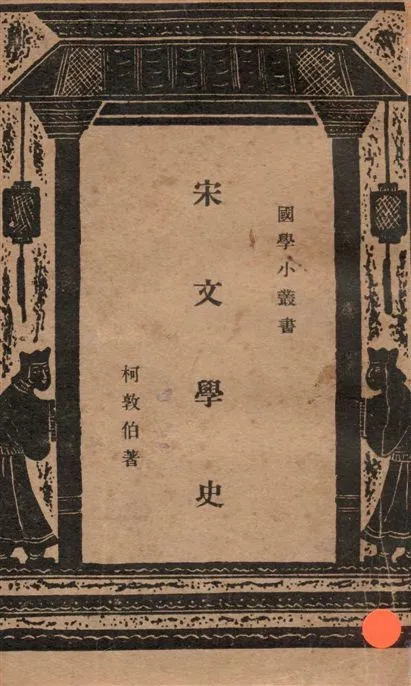 國學小叢書
宋文學史
柯敦伯著